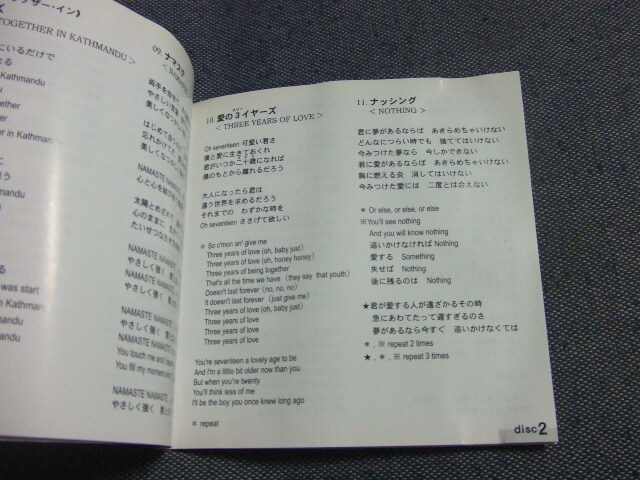 ッザー・イン)
ズ
OGETHER IN KATHMANDU >
にいるだけで
Kathmandu
る
ether
er in Kathmandu
う
る
was start
Kathmandu
andu
09. ナマステ
両手を合せて
やさしくな
美しくな
はじめて会
忘れかけて
美しくな
NAMASTE
心と心を結
太陽とめざめて
心のままに
たいせつな
NAMASTE NAMASTE
やさしく強く
NAMASTE
やさしく強く
NAMASTE NAMASTE
You touch me and
You fill my moment
NAMASTE NAMASTE
やさしく強く
10. 愛の3イヤーズ
< THREE YEARS OF LOVE >
Oh seventeen 可愛い君さ
僕と愛に生きておくれ
君がいつか二十歳になれば
僕のもとから離れるだろう
大人になったら君は
違う世界を求めるだろう
それまでの わずかな時を
Oh seventeen ささげて欲しい
* So c'mon an' give me
Three years of love (oh, baby just)
Three years of love (oh, honey honey)
Three years of being together
That's all the time we have (they say that youth)
Doesn't last forever (no, no, no)
It doesn't last forever (just give me)
Three years of love (oh, baby just)
Three years of love
Three years of love
Three years of love
You're seventeen a lovely age to be
And I'm a little bit older now than you
But when you're twenty
You'll think less of me
I'll be the boy you once knew long ago
* repeat
11. ナッシング
< NOTHING >
君に夢があるならば あきらめちゃいけない
どんなにつらい時でも 捨ててはいけない
今みつけた夢なら 今しかできない
君に愛があるならば あきらめちゃいけない
胸に燃える炎 消してはいけない
今みつけた愛には 二度とは会えない
* Or else, or else, or else
※You'll see nothing
And you will know nothing
追いかけなければ Nothing
愛する Something
失せば Nothing
後に残るのは Nothing
★君が愛する人が遠ざかるその時
急にあわてたって遅すぎるのさ
夢があるなら今すぐ 追いかけなくては
*, ※ repeat 2 times
★, *, ※ repeat 3 times
disc2